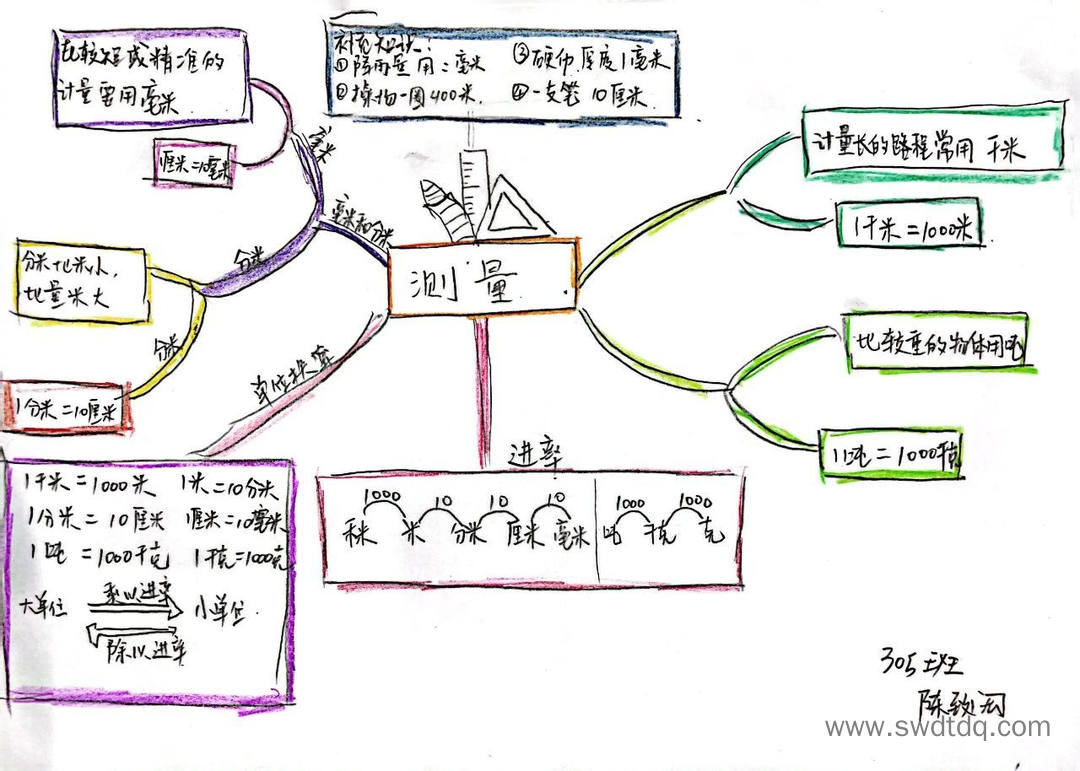 补充知识:
①降雨量用:毫米
③硬币厚度1毫米
②操场一圈400米.
④一支笔10厘米.
比较短或精准的
计量需用毫米
厘米=10毫米
毫米
毫米和分米
分米
分米比米小,
比厘米大
分米
1分米=10厘米
测量
计量长的路程常用 千米
1千米=1000米
比较重的物体用吨
1吨=1000千克
单位换算
1千米=1000米 1米=10分米
1分米=10厘米 1厘米=10毫米
1吨=1000千克 1千克=1000克
大单位
乘以进率
小单位.
除以进率
进率
1000 10 10 10 1000 1000
米 分米 厘米 毫米 吨 千克 克
305班
www.swdtdq.com